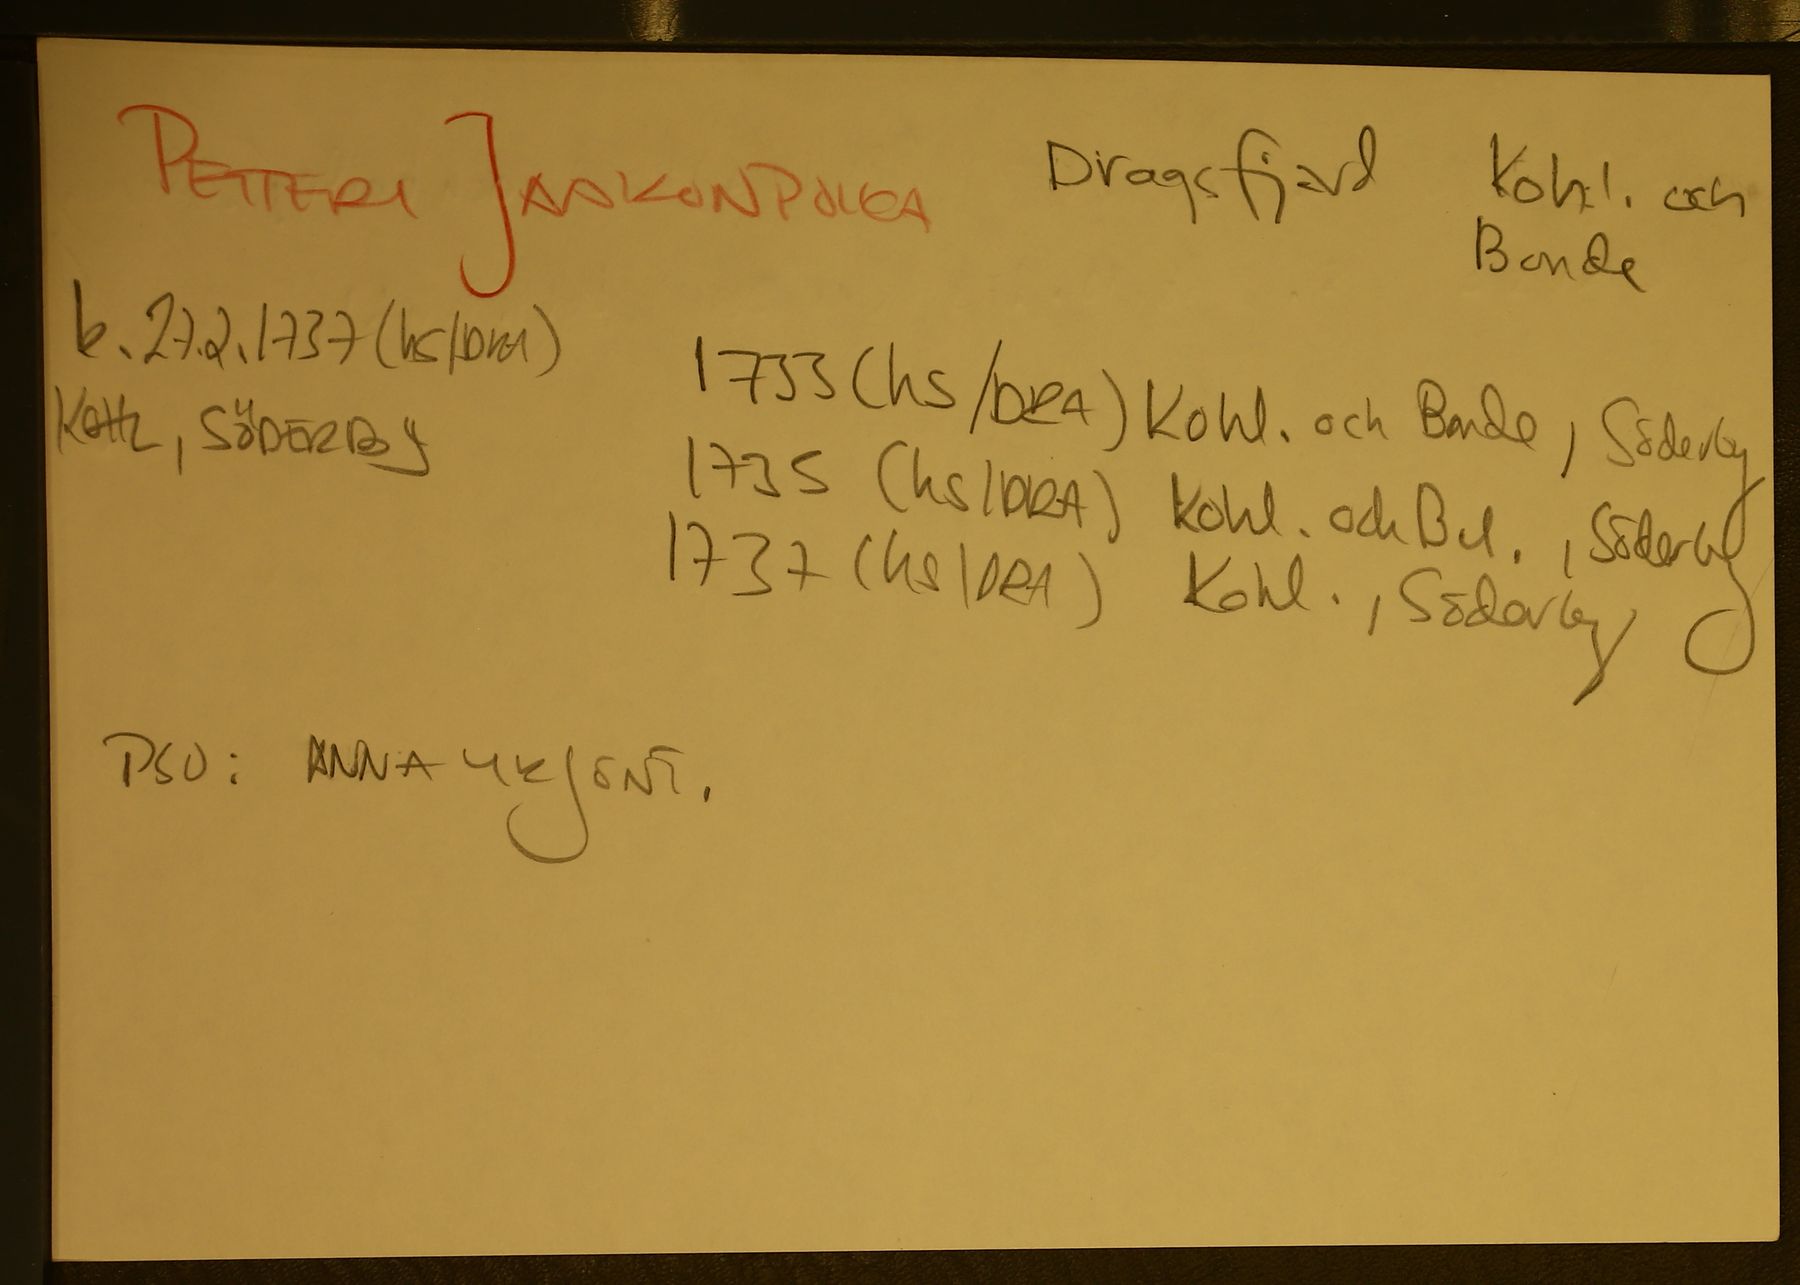 PETTERI JAAKONPOIKA
Dragsfjärd Kohl. och
Bonde
k. 27.2.1737 (hs/DRA)
SÖDERBY
1733 (hs/DRA) Kohl. och Bonde, Söderby
1735 (hs/DRA) Kohl. och Bd., Söderby
1737 (hs/DRA) Kohl., Söderby
PSO: ANNA YRJÖNT.